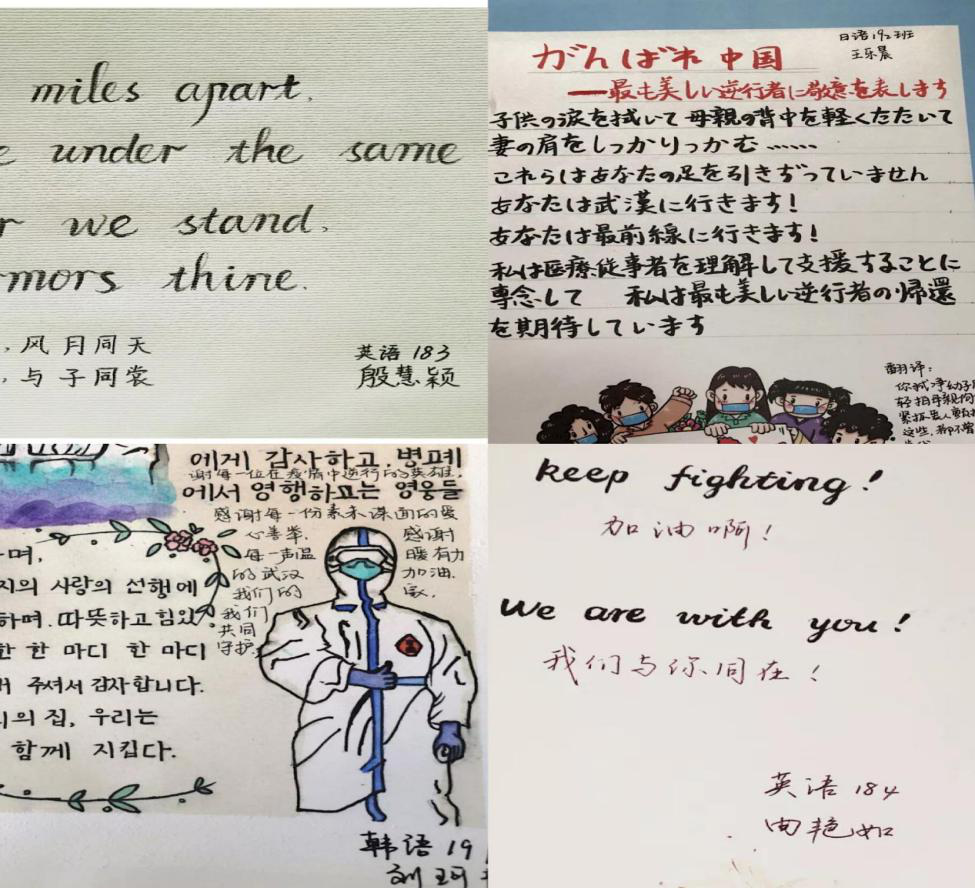 miles apart,
e under the same
r we stand,
rmors thine.
，风月同天
，与子同裳
英语 183
殷慧颖
日语192班
王乐晨
がんばれ 中国
——最も美しい逆行者に敬意を表します
子供の涙を拭いて 母親の背中を軽くたたいて
妻の肩をしっかりっかむ ……
これらはあなたの足を引きぢっていません
あなたは武漢に行きます!
あなたは最前線に行きます!
私は医療従事者を理解して支援することに
専念して 私は最も美しい逆行者の帰還
を期待しています
翻译:
你拭净幼子
轻拍母亲的
这些，都不曾
에게 감사하고, 병폐
谢每一位在疫情中逆行的英雄.
에서 영행하고는 영웅들
感谢每一份素未谋面的爱
心善举. 感谢
每一声温 暖有力
的武汉 加油.
我们的 家,
我们
共同
守护.
하며,
지의 사랑의 선행에
하며. 따뜻하고 힘있
한 한 마디 한 마디
주셔서 감자합니다.
리의 집, 우리는
함께 지킵다.
韩语 19
keep fighting!
加油啊!
We are with you!
我们与你同在!
英语 184
艳如